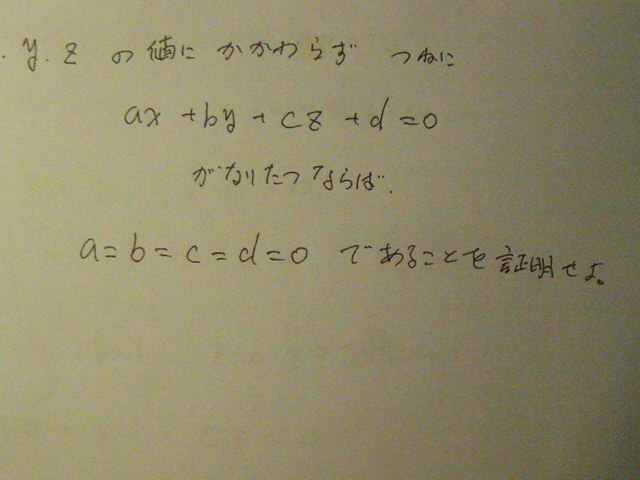 . y. z の値に かかわらず つねに
ax + by + cz + d = 0
がなりたつならば.
a = b = c = d = 0 であることを証明せよ。